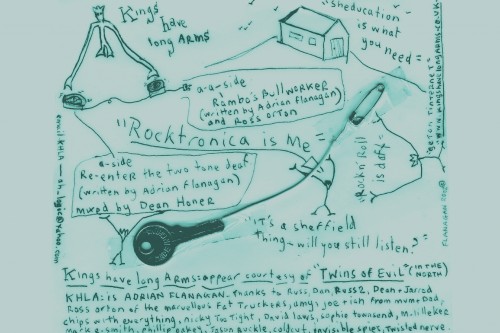 Kings
have
long ARMS
"sheducation
is what
you need"
a-a-side
Rambo's Bullworker
(written by Adrian Flanagan)
and Ross Orton
"Rocktronica is Me"
a-side
Re-enter the two tone deaf
(written by Adrian Flanagan)
mixed by Dean Honer
"Rock n' Roll
is daft"
"It's a sheffield
Thing - will you still listen?"
Kings have long Arms: appear courtesy of "Twins of Evil" (IN THE NORTH)
KHLA: is ADRIAN FLANAGAN. Thanks to Russ, Dan, Russ 2, Dean + Jarrod
Ross orton of the marvellous Fat Truckers, amy, joe + rish from mum + Dad,
chips with everything, nicky Tug Tight, David laws, sophie townsend, M-lilleker
mark e-smith, Phillip oakey, Jason Buckle, coldcut, invisible spies, Twisted nerve.